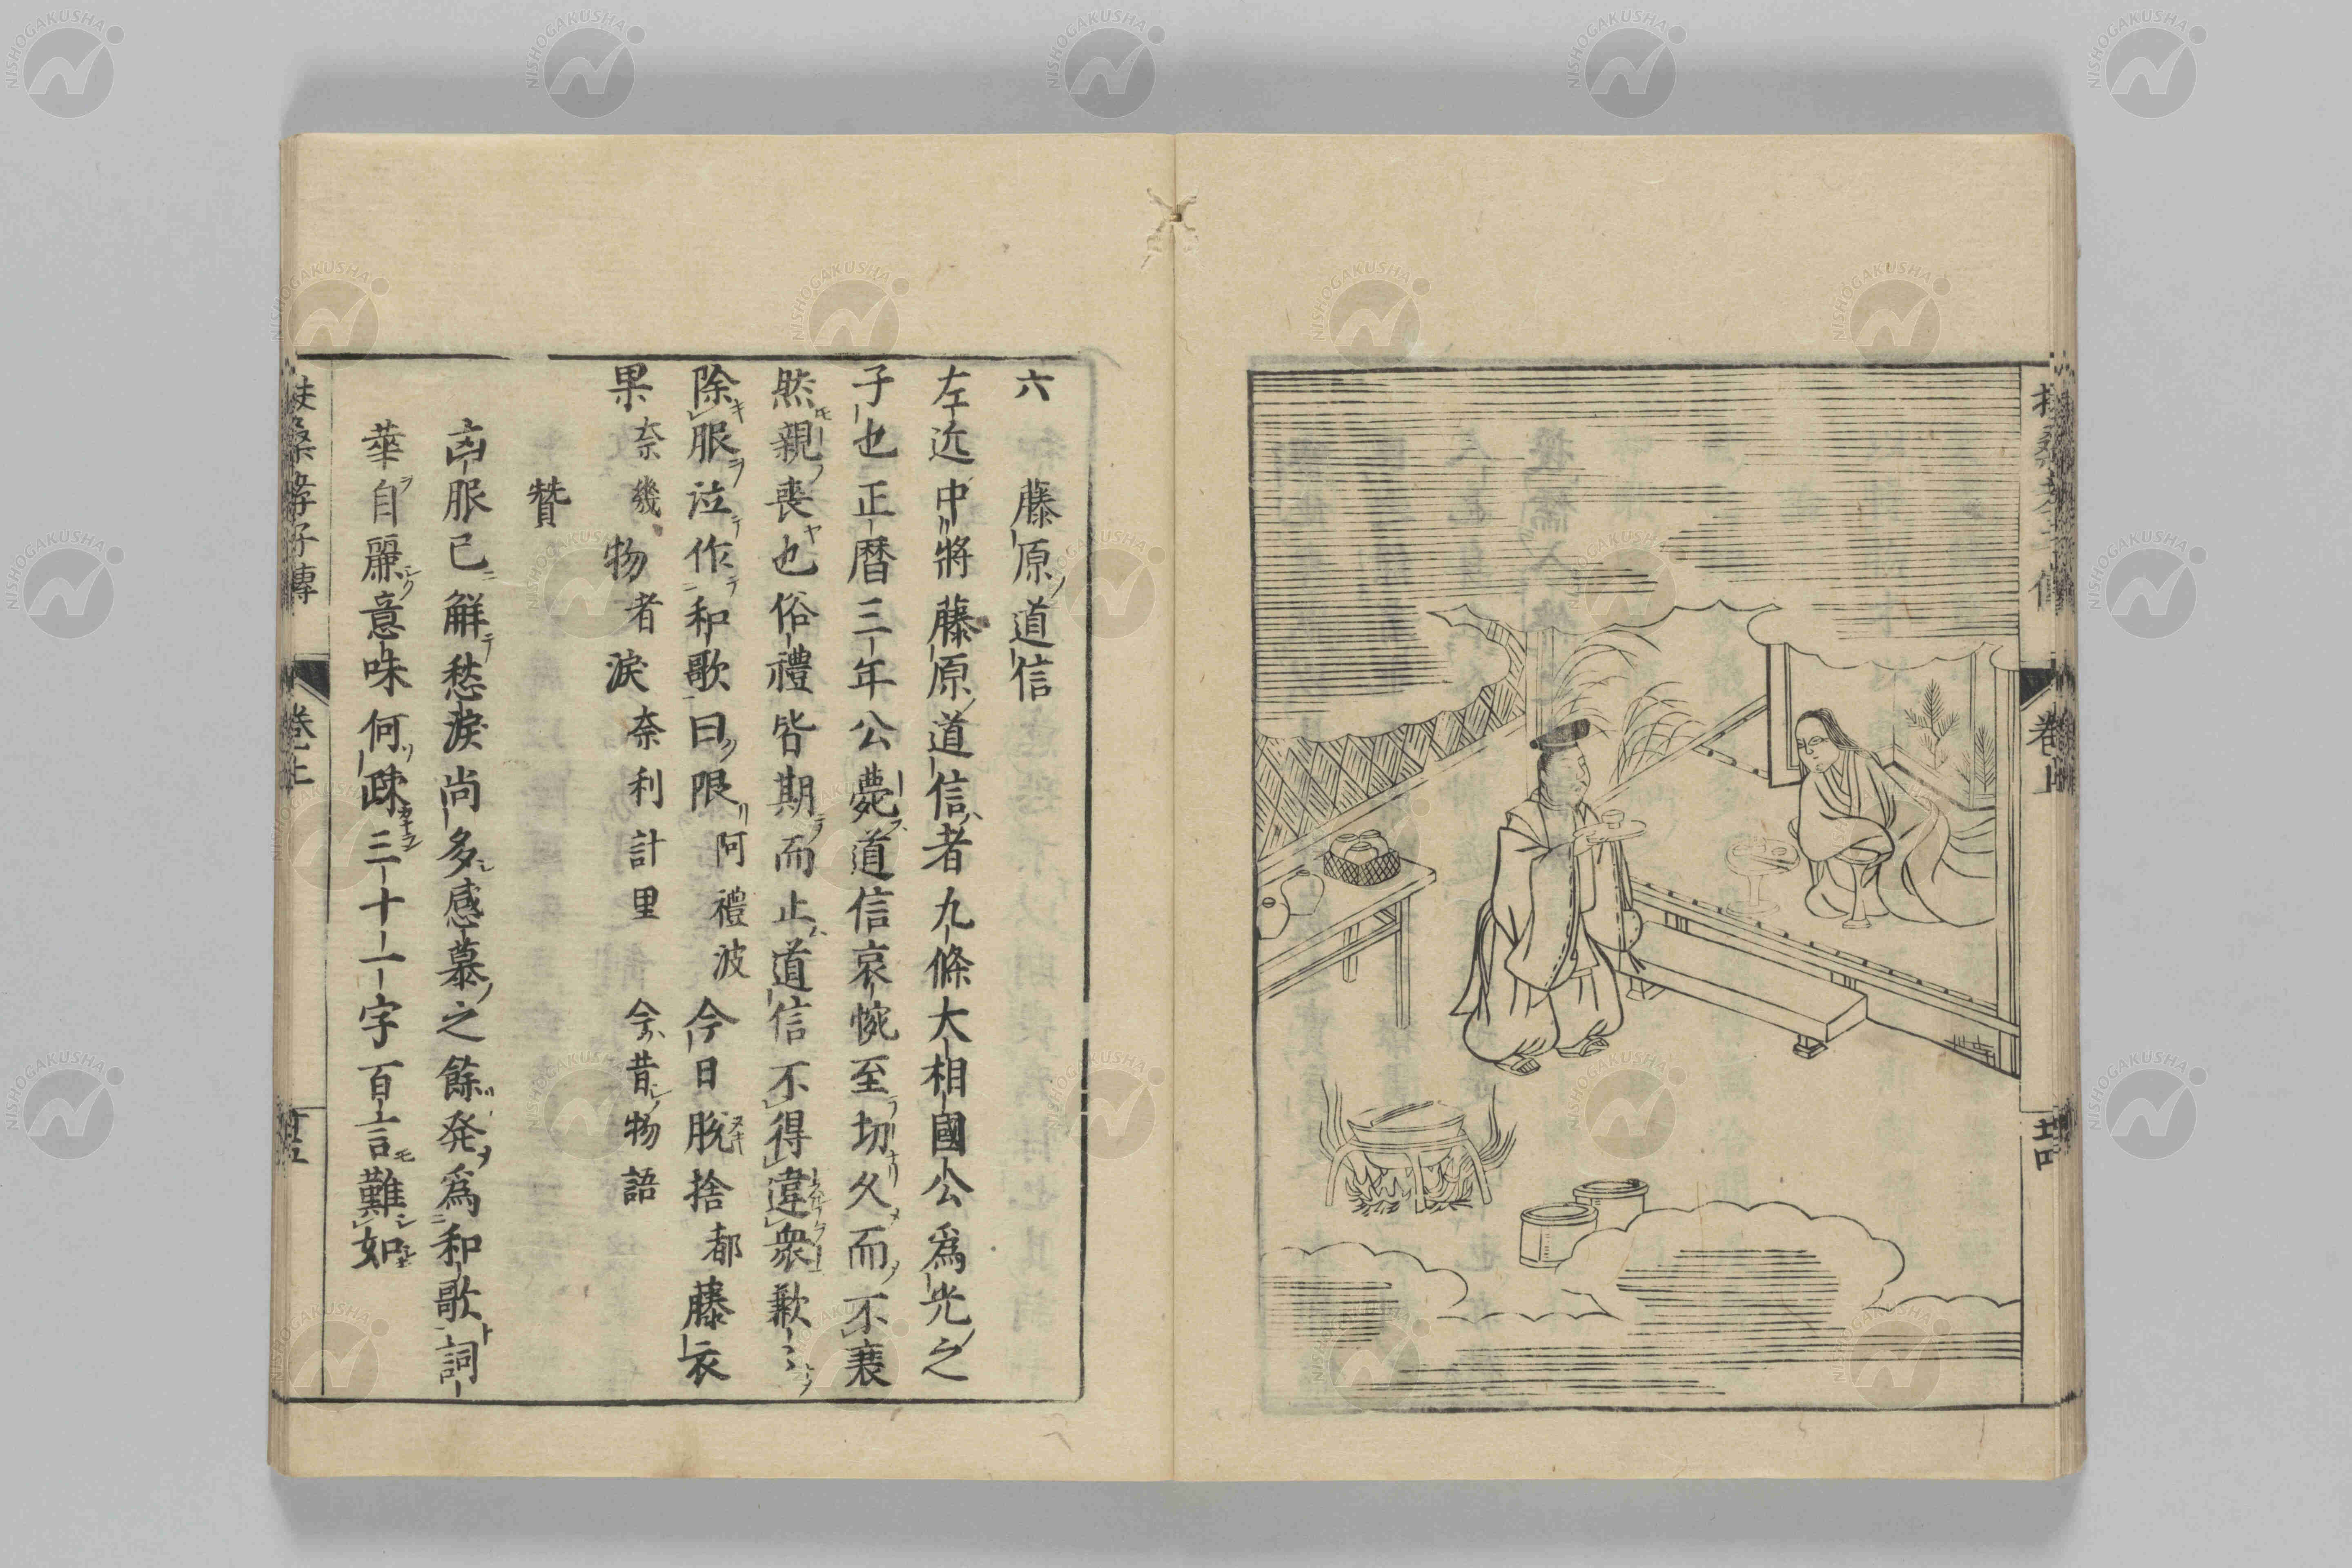 六 藤原道信
左近中將藤原道信者九條大相國公爲光之
子也正暦三年公薨道信哀惋至切久而不衰
然親喪也俗禮皆期而止道信不得違衆歎〻
除服泣作和歌曰限阿禮波今日脱捨都藤衣
果奈幾物者淚奈利計里 今昔物語
贊
凶服已解愁淚尚多感慕之餘発爲和歌詞
華自麗意味何疎三十一字百言難如
扶桑孝子傳 卷上 十五
扶桑孝子傳 卷上 十四
NISHOGAKUSHA